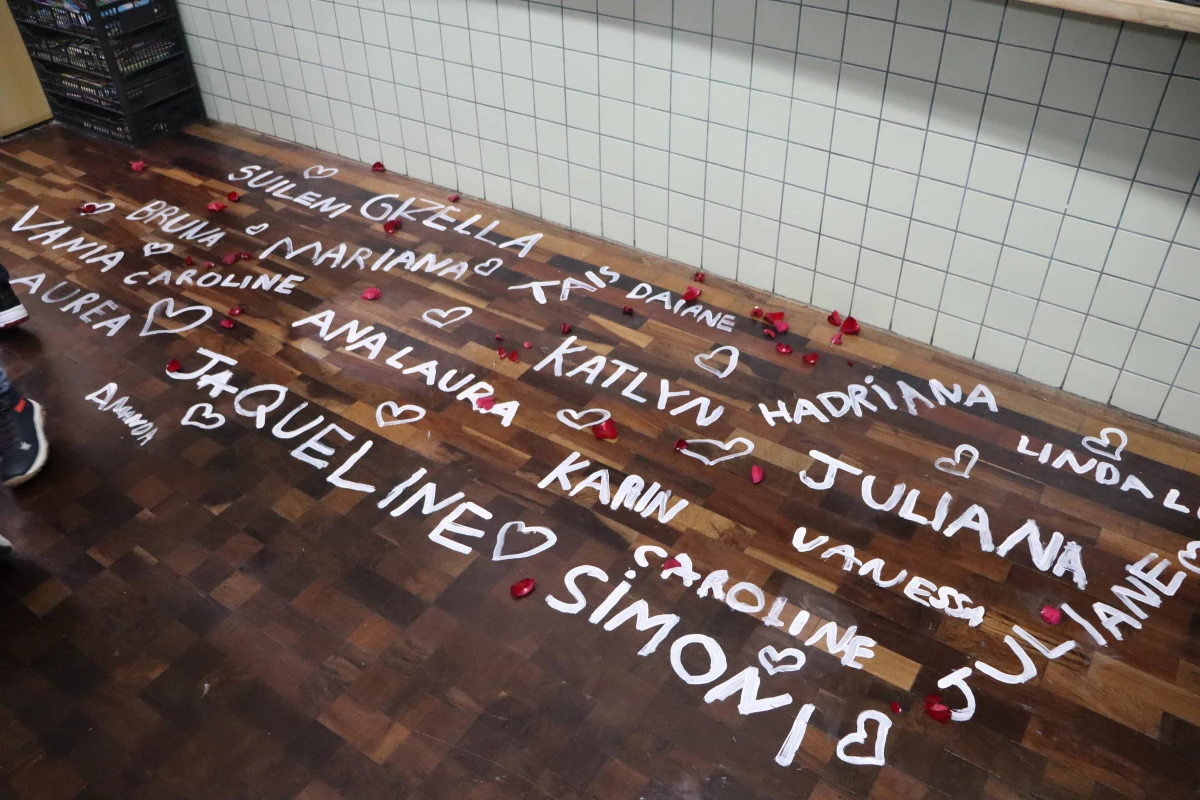 SUILENI GIZELLA
BRUNA MARIANA TAÍS DAIANE
VANIA CAROLINE
AUREA ANA LAURA KATLYN HADRIANA LINDA L
AMANDA JAQUELINE KARIN JULIANA
CAROLINE VANESSA JULIANE
SIMONI